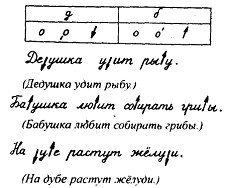 д б
о о ↓ о о ↑
Де↓ушка у↓ит ры↑у.
(Дедушка удит рыбу.)
Ба↑ушка лю↑ит со↑ирать гри↑ы.
(Бабушка любит собирать грибы.)
На ↓у↑е растут жёлу↓и.
(На дубе растут жёлуди.)